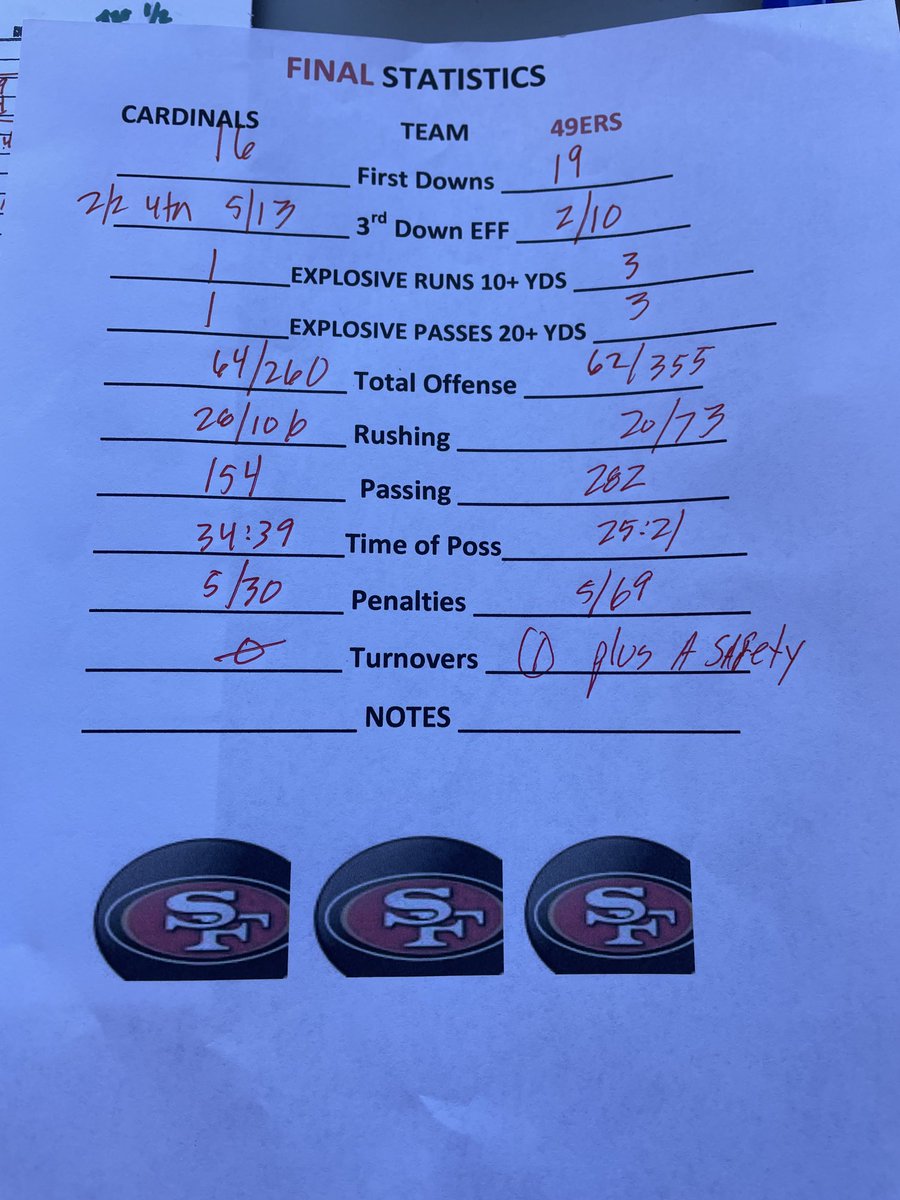 FINAL STATISTICS
CARDINALS TEAM 49ERS
16 First Downs 19
2/2 4th 5/13 3rd Down EFF 2/10
1 EXPLOSIVE RUNS 10+ YDS 3
1 EXPLOSIVE PASSES 20+ YDS 3
64/260 Total Offense 62/355
/106 Rushing 20/73
154 Passing 282
34:39 Time of Poss 25:21
5/30 Penalties 5/69
0 Turnovers 1 plus A SAFety
NOTES
SF SF SF